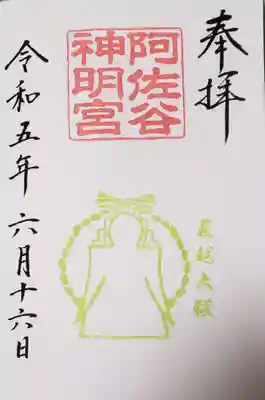 奉拝
阿佐谷
神明宮
夏越大祓
令和五年 六月十六日